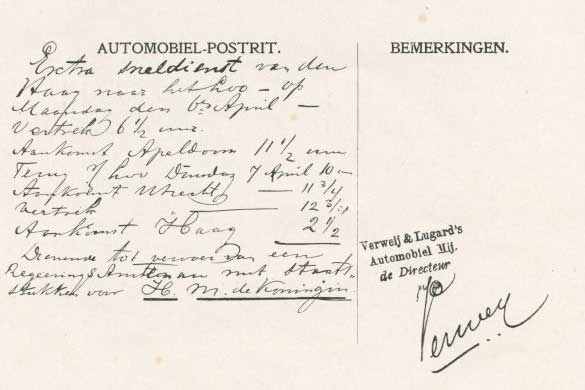 AUTOMOBIEL-POSTRIT.
Extra sneldienst van den
Haag naar het Loo – op
Maandag den 6en April –
Vertrek 6 1/2 uur.
Aankomst Apeldoorn 11 1/2 uur
Terug v/ Loo Dinsdag 7 April 10 –
Aankomst Utrecht — 11 3/4
Vertrek — 12 3/4
Aankomst 's Haag 2 1/2
Dienende tot vervoer van een
Regeerings Ambtenaar met staats"
stukken voor H. M. de Koningin
BEMERKINGEN.
Verweij & Lugard's
Automobiel Mij.
de Directeur
Verwey